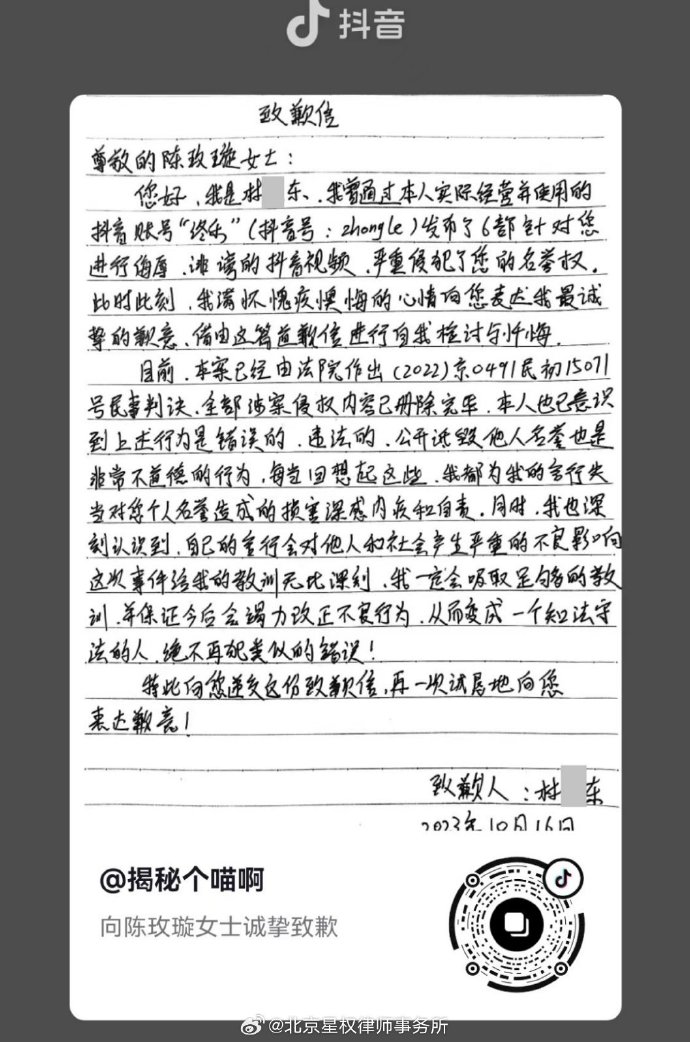 抖音
致歉信
尊敬的陈玫璇女士：
您好，我是林 东、我曾通过本人实际经营并使用的
抖音账号“终乐”（抖音号：zhongle）发布了6部针对您
进行侮辱、诽谤的抖音视频，严重侵犯了您的名誉权，
此时此刻，我满怀愧疚懊悔的心情向您表达我最诚
挚的歉意、借由这篇道歉信进行自我检讨与忏悔.
目前，本案已经由法院作出（2022）京0491民初15071
号民事判决、全部涉案侵权内容已删除完毕，本人也已意识
到上述行为是错误的、违法的、公开诋毁他人名誉也是
非常不道德的行为，每当回想起这些，我都为我的言行失
当对您个人名誉造成的损害深感内疚和自责，同时，我也深
刻认识到，自己的言行会对他人和社会产生严重的不良影响
这次事件给我的教训无比深刻，我一定会吸取足够的教
训，并保证今后会竭力改正不良行为，从而变成一个知法守
法的人，绝不再犯类似的错误！
特此向您递交这份致歉信，再一次诚恳地向您
表达歉意！
致歉人：林 东
2023年10月16日
@揭秘个喵啊
向陈玫璇女士诚挚致歉
@北京星权律师事务所